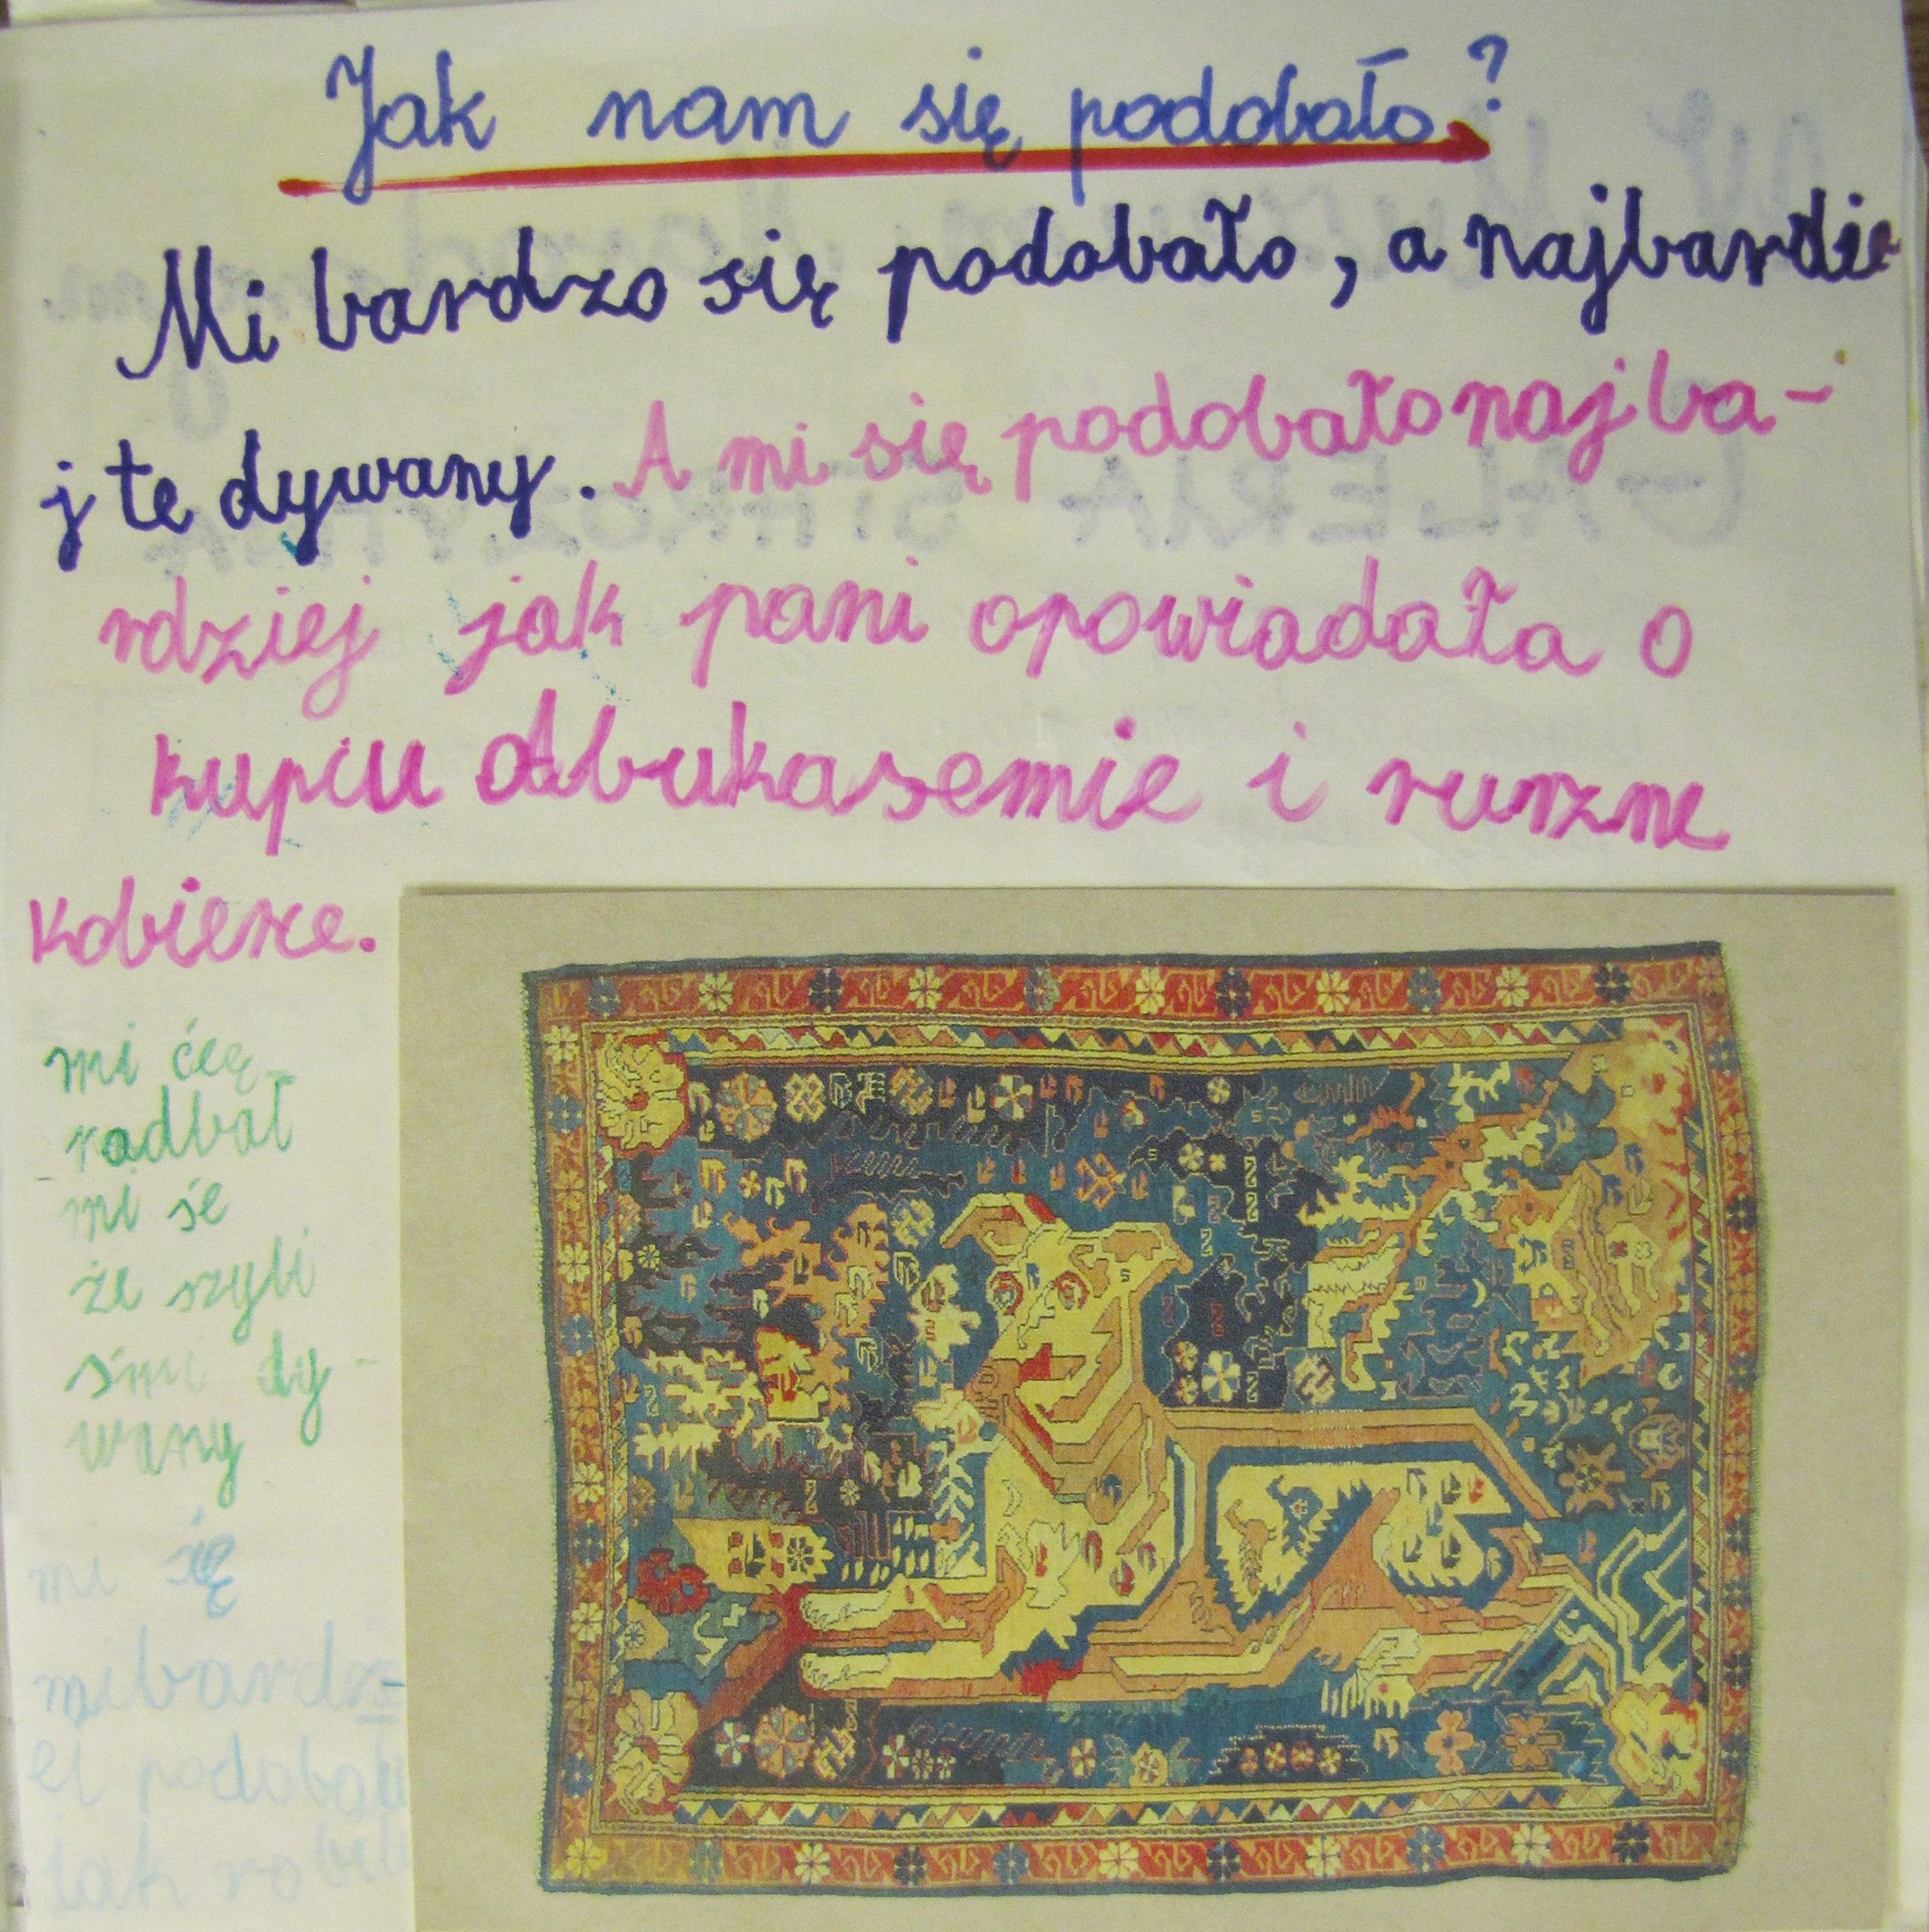 Jak nam się podobało?
Mi bardzo się podobało, a najbardzie
j te dywany. A mi się podobało najba-
rdziej jak pani opowiadała o
kupcu Abukasemie i rurzne
kobierce.
mi ćię
mi śe
że szyli
śmi dy-
wany
mi się
podobało
jak robili